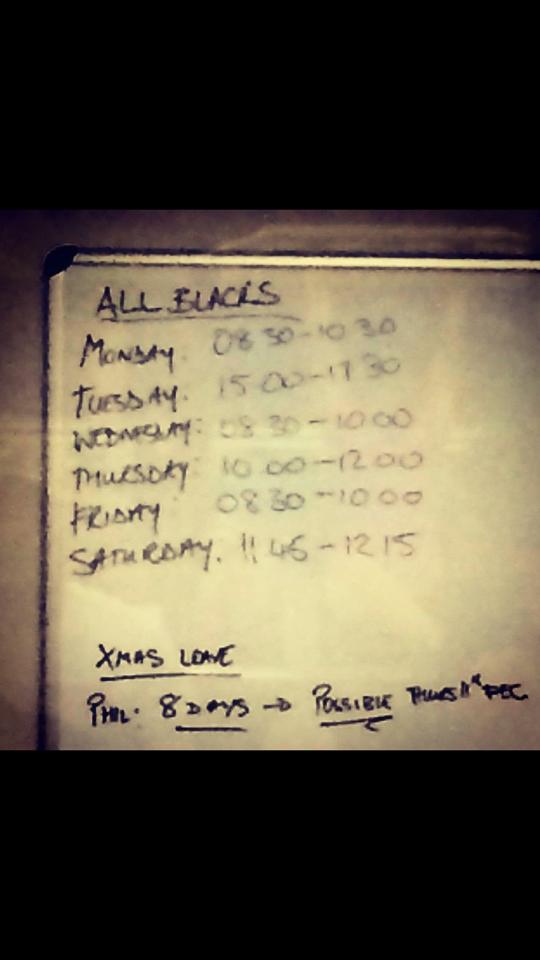 ALL BLACKS
MONDAY: 08 30 - 10 30
TUESDAY. 15 00 - 17 30
WEDNESDAY: 08 30 - 10 00
THURSDAY: 10 00 - 12 00
FRIDAY 08 30 - 10 00
SATURDAY. 11 45 - 12 15
XMAS LOVE
PHIL. 8 DAYS → POSSIBLE THURS 11th DEC